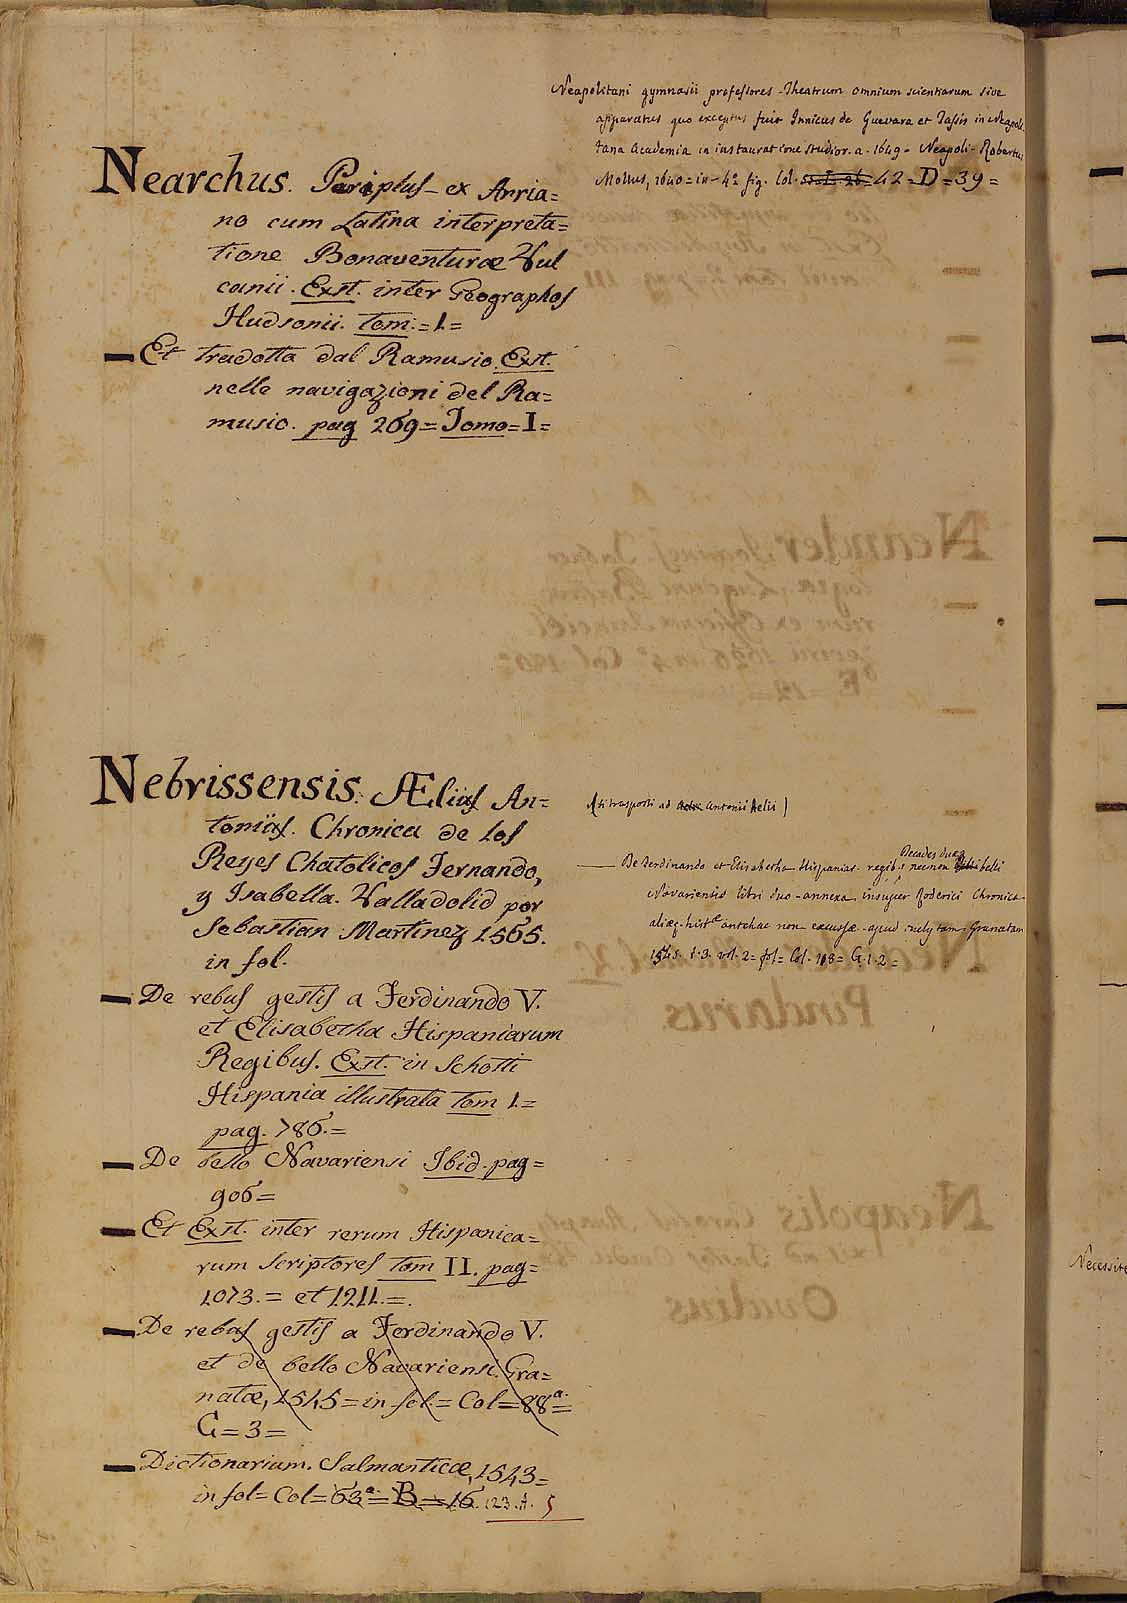 Neapolitani gymnasii professores - Theatrum omnium scientiarum sive
apparatus quo exceptus fuit Innicus de Guevara et Tassis in Neapoli
tana Academia in instauratione studior. a. 1649 - Neapoli - Robertus
Mollus, 1640 = in - 4º fig. Col. 42 = D = 39 =
Nearchus. Periplus - ex Arria=
no cum Latina interpreta=
tione Bonaventuræ Vul
canii. Exst. inter Geographos
Hudsonii. tom: = 1 =
Et tradotta dal Ramusio. Ext.
nelle navigazioni del Ra=
musio. pag 269 = Tomo = I =
Nebrissensis. Ælius An=
tonius. Chronica de los
Reyes Chatolicos Fernando,
y Isabella. Valladolid por
Sebastian Martinez 1565.
in fol.
De rebus gestis a Ferdinando V.
et Elisabetha Hispaniarum
Regibus. Exst. in Schotti
Hispania illustrata tom 1. =
pag. 786. =
De bello Navariensi Ibid. pag =
906 =
Et Exst. inter rerum Hispanica=
rum scriptores tom II. pag =
1073. = et 1211. = .
De rebus gestis a Ferdinando V.
et de bello Navariensi. Gra=
natæ, 1545 = in fol. = Col = 88ª. =
G = 3 =
Dictionarium. Salmanticæ, 1543 =
in fol = Col = 63ª. = B = 16. 123. A. 5
(si trasporti ad Antonii Aelii)
Decades duæ
De Ferdinando et Elisabetha Hispaniar. regibus necnon belli
Navariensis libri duo - annexa insuper Roderici Chronica
aliæq. histæ antehac non excussæ - apud inclytam Granatam
1545. t. 3. vol. 2 = fol = Col. 118 = G. 1. 2 =
Necessite